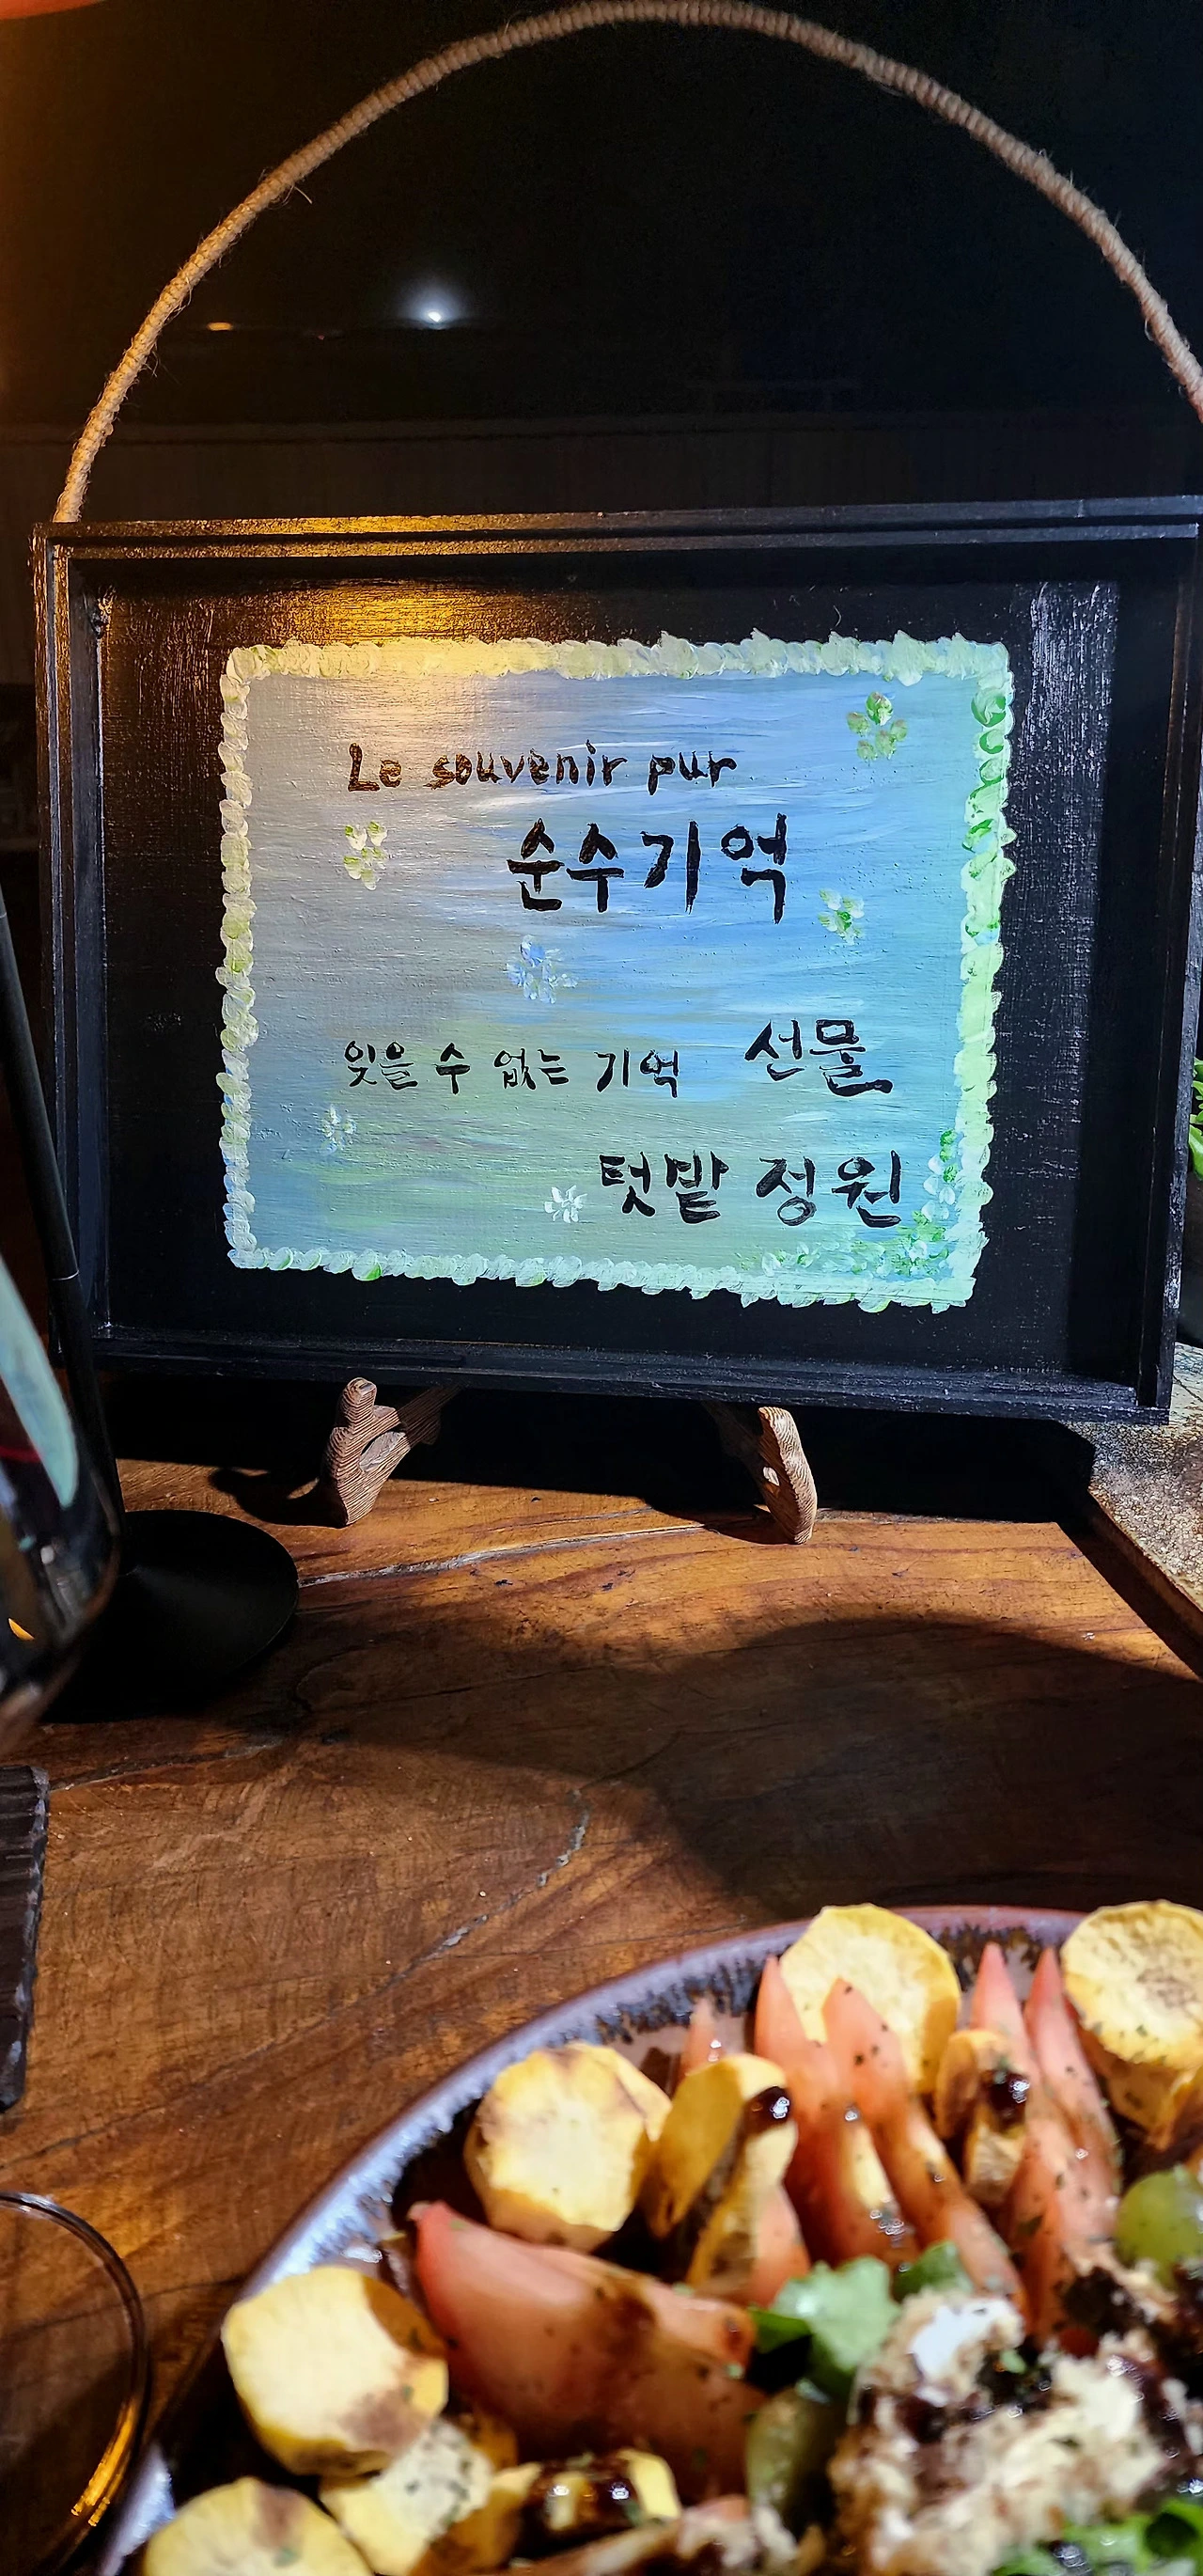 Le souvenir pur
순수기억
잊을 수 없는 기억 선물
텃밭 정원